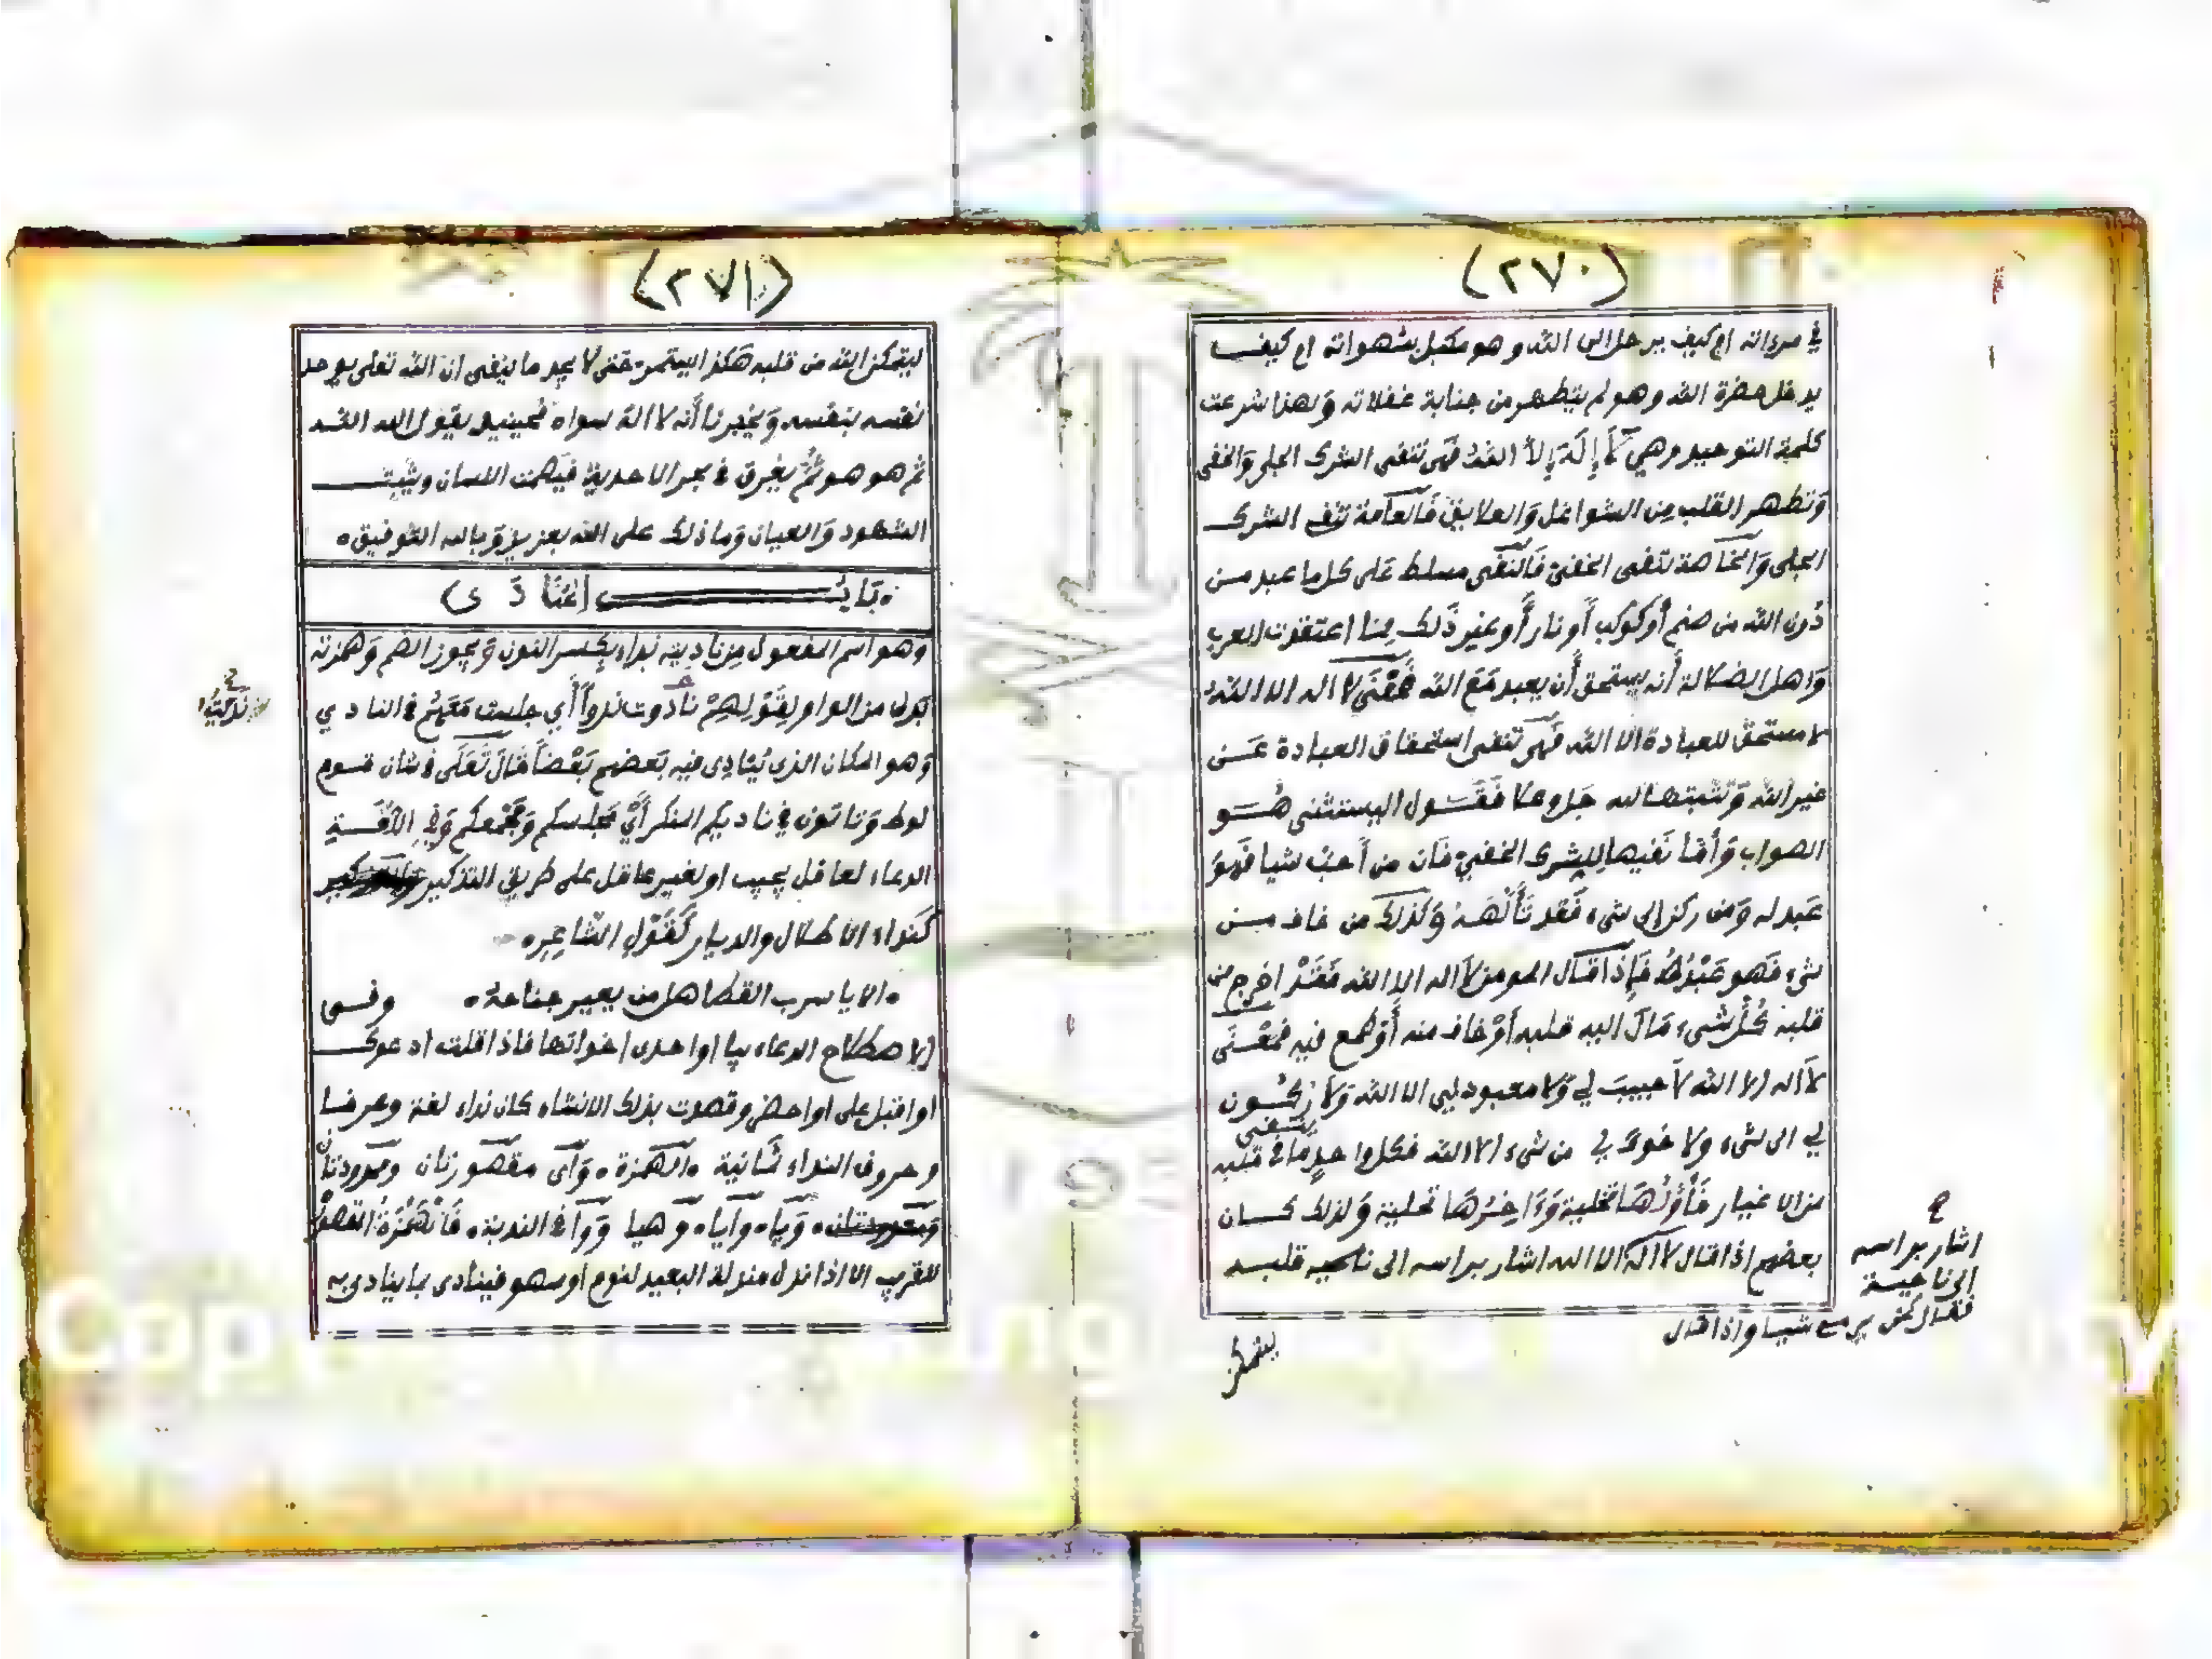 (٢٧٠)
في مرءاته ام كيف يرحل الى الله وهو مكبل بشهواته ام كيف
يدخل حضرة الله وهو لم يتطهر من جنابة غفلاته وَلهذا شرعت
كلمة التوحيد وهي لَا إِلَهَ إِلَّا اللهُ فهي تنفى الشرك الجلي وَالخفى
وَتطهر القلب مِن الشواغل وَالعلايق فَالعآمة تنفى الشرك
الجلى وَالخآصة تنفى الخفىّ فَالنّفى مسلط عَلى كل ما عبد من
دُون الله من صنم أَو كوكب أَو نار أَو غير ذَلك مما اعتقدت العرب
وَاهل الضلالة أَنه يستحق أَن يعبد مَعَ الله فَمَعْنَى لا اله الا اللهُ
لا مستحق للعبادة الا الله فَهي تنفى استحقاق العبادة عَن
غير الله وَتثبتها لله جَل وعلا فَقَول اليستثنى هُوَ
الصواب وَأَمّا نَفيها لِلشرك الخفيّ فَان من أَحبّ شيا فَهوَ
عَبد له وَمن ركن إلى شىء فَقد تَأَلَّهَهُ وَكذلك من خاف من
شىء فَهو عَبْدُهُ فَإِذَا قال المومن لا اله الا الله فَقَدْ اخرج من
قلبه كُلّ شىء مَالَ اليه قلبه أَوْ خاف منه أَوطمع فيه فمَعْنَى
لا اله الا الله لا حَبيبَ لي وَلا معبود لي الا الله وَلا رُكُون
لي الى شىء ولا خوف لي من شىء الا الله فكل واحدٍ يَنفى مَا في قلبه
من الاغيار فَأَوَّلُهَا تخلية وَءَاخِرُهَا تحلية وَلذلك كان
بعضهم اذا قال لا اله الا الله اشار براسه الى ناحيه قلبه
اشار براسه
الى ناحية
فقال كمن يرمى شيا واذا قال
ليتمكن
(٢٧١)
ليتمكن الله من قلبه هكذا اليستمر حَتى لا يجد ما ينفى ان الله تعلى يوحد
نفسه بنفسه وَيخبرنا أَنه لا اله سواه فحينيد يقول الله الله
ثم هو هو ثُمَّ يغرق في بحر الاحدية فيَصْمت اللسان ويثبت
الشهود وَالعيان وَما ذلك على الله بعزيز وَبالله التوفيق ه
بَابُ المُنَادَى
وَهو اسم المفعول مِن ناديته نداء بِكسر النون وَيجوز الضم وَهمزته
بدل من الواو لِقَوْلِهِمْ نادوت ندواً أَي جلست مَعَهُمْ في النادي
وَهو المكان الذى يُنَادِى فيه بَعضهم بَعْضاً قَالَ تَعَلَى في شان قوم
لوط وَتاتون في ناديكم المنكر أَيْ مَجلسكم وَمَجْمعكم وَفِي اللُّغَةِ
الدعاء لعاقل يجيب او لغير عاقل على طريق التذكير
كَنداء الاطلال والديار كَقَوْلِ الشّاعِرِ ه
ه الا يا سرب القطا هل من يعير جناحهُ ه وفى
الاصطلاح الدعاء بيا او احدى اخواتها فاذا قلت ادعوك
او اقبل على او احضر وقصدت بذلك الانشاء كان نداء لغة وعرفا
وحروف النداء ثمانية ه الهمزة ه وَآى مقصورتان وممدودتان
ه وَيا ه وايا ه وَهيا وَوَا في الندبة ه فَالْهَمْزَةُ المقصورُ
للقرب الا اذا نزل منزلة البعيد لنوم او سهو فينادى بما ينادى به